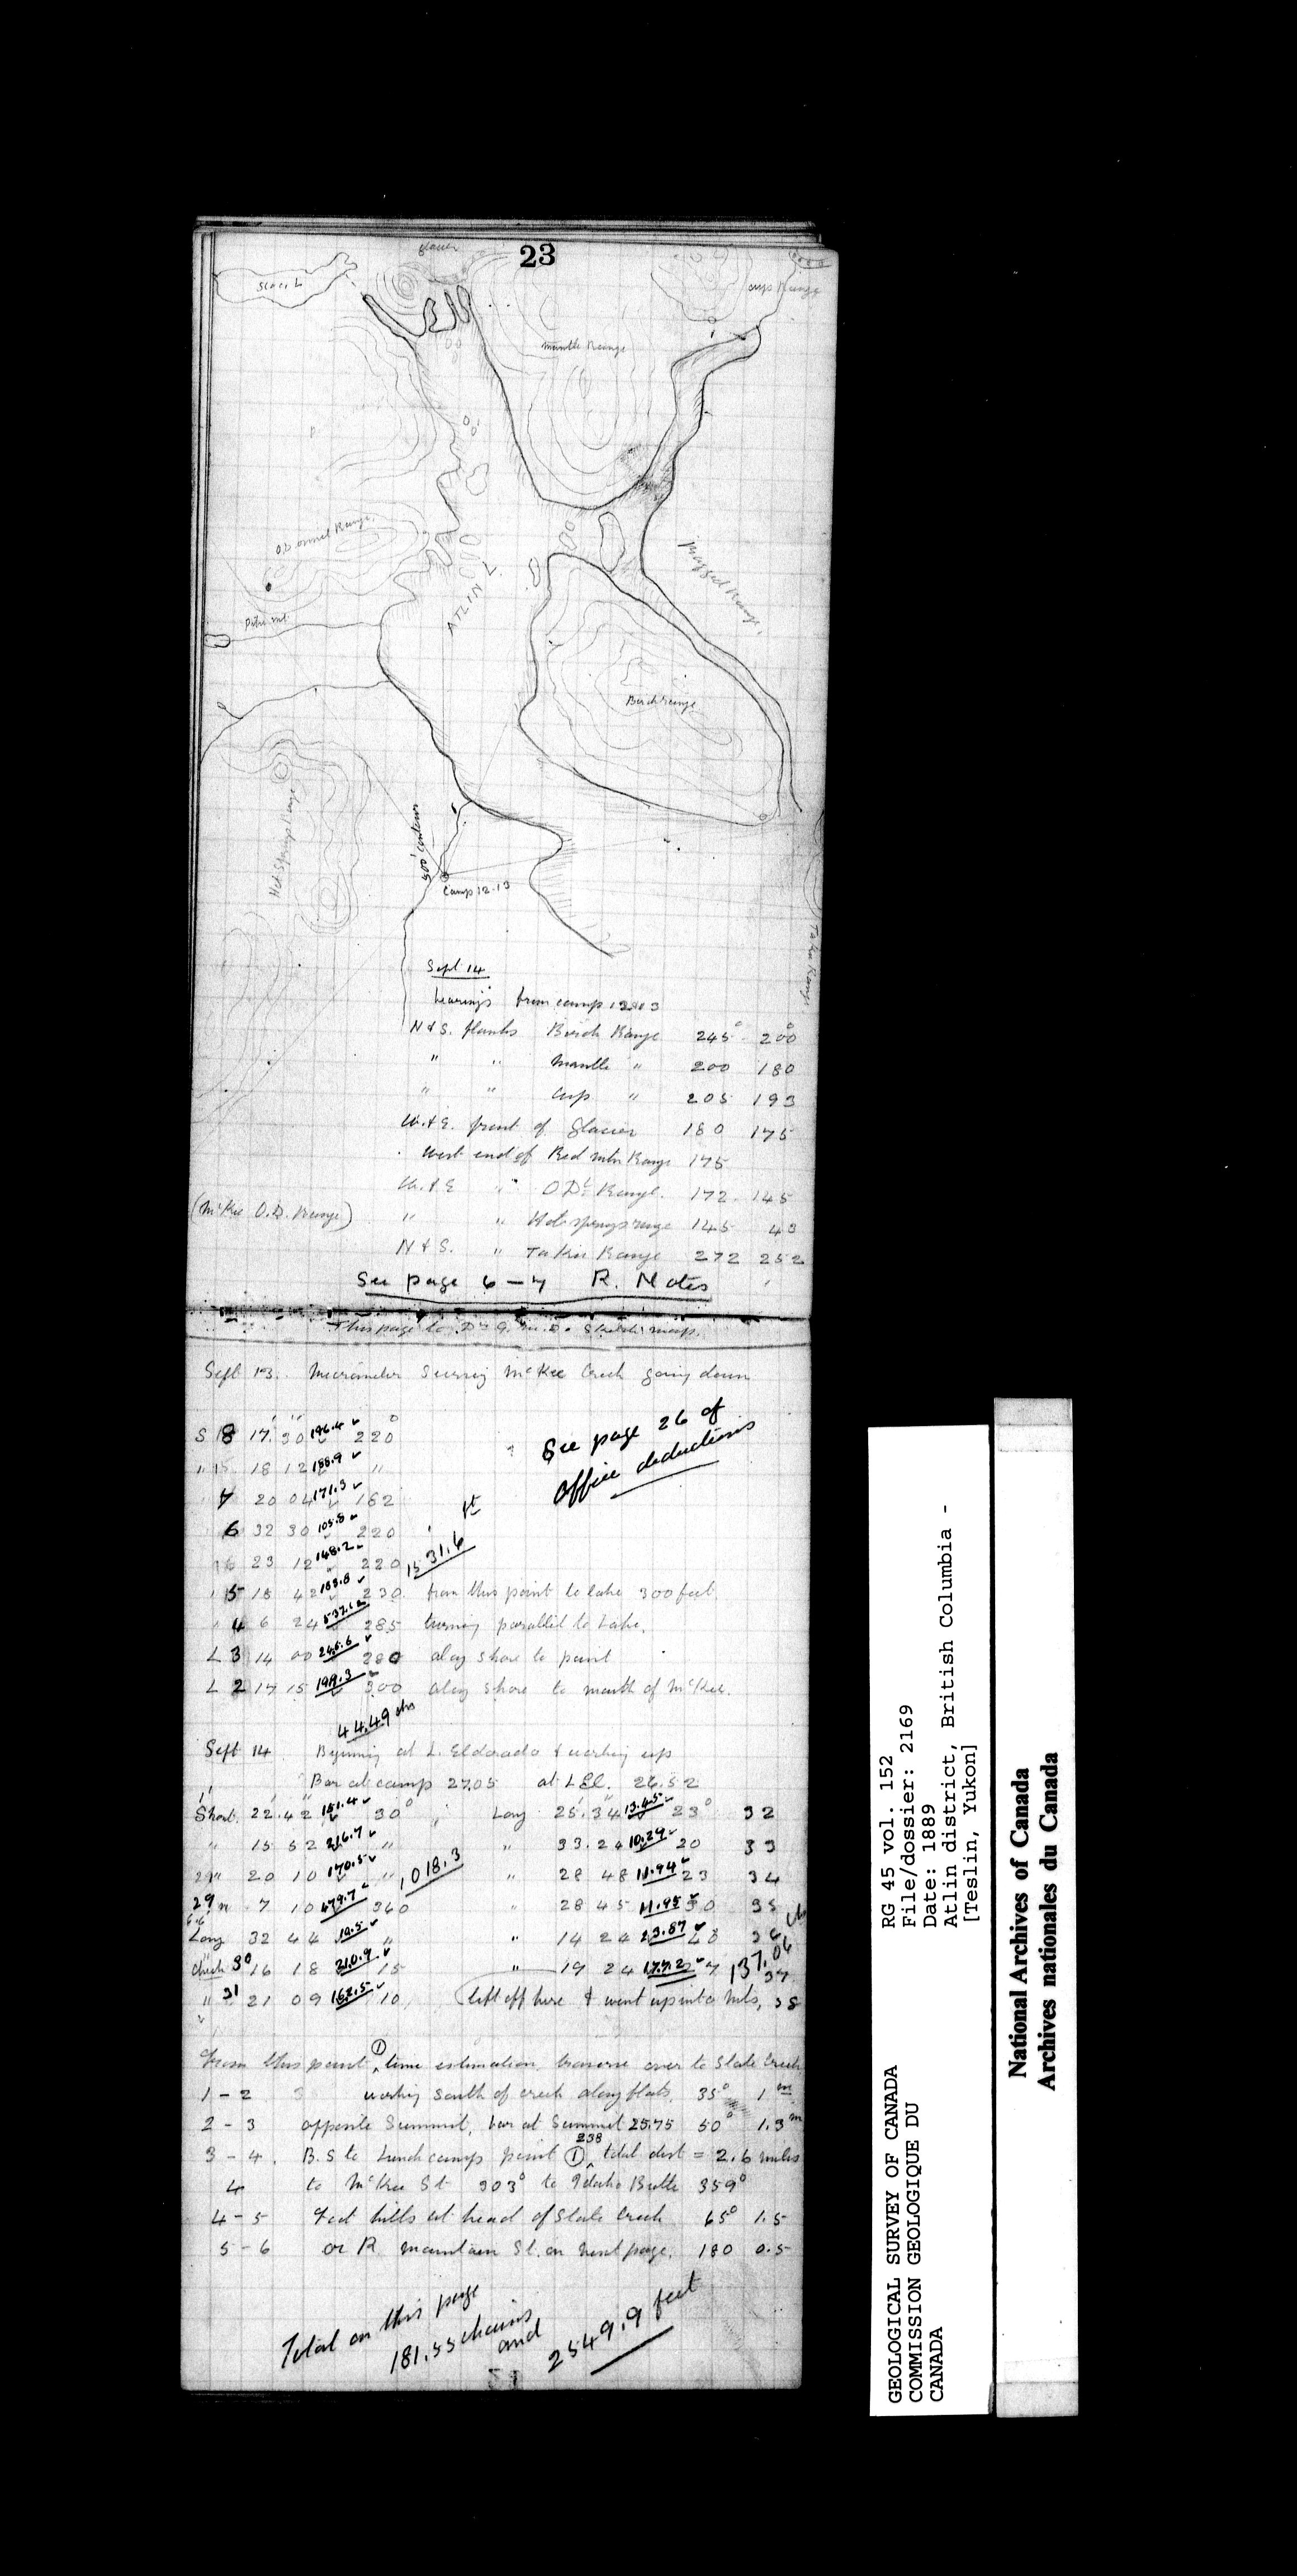 23
glacier
Range
Mantle Range
O'Donnel Range
ATLIN L.
Ragged Range
Birch Range
Hot Springs Range
500' contours
Camp 12-13
Taku Range
Sept 14
bearings from camp
N & S. flanks Birch Range 245° 200°
" " Mantle " 200 180
" " Cup " 205 193
W. & E. front of Glacier 180 175
West end of Red Mtn Range 175
W. & E " O.D. Range. 172. 145
(McKee O.D. Range) " " Hot springs range 145
N & S. " Taku Range 272 252
See page 6-7 R. Notes
This page to Dr G. M. D. Sketch map.
Sept 13. Micrometer Survey McKee Creek going down
S 8 17' 30" 196.4 220°
" 18 12 188.9 "
7 20 04 171.3 162
6 32 30 105.8 220
23 12 148.2 220
1531.6 ft
5 18 42 183.8 230 from this point to lake 300 feet.
4 6 24 537.1 285 turning parallel to Lake.
L 3 14 00 245.6 280 along shore to point
L 2 17 15 199.3 300 along shore to mouth of McKee.
See page 26 of
Office deductions
44.49 chs
Sept 14 Beginning at L. Eldorado & working up
Bar at camp 27.05 at L El. 26.52
Short 22.42 151.4 30° Long 25.34 13.45 23° 32
" 15 52 216.7 " " 33.24 10.29 20 33
20 10 170.5 " 1,018.3 " 28 48 11.94 23 34
29 7 10 479.7 360 " 28 45 11.95 30 35
Long 32 44 10.5 " " 14 24 23.87 36
check 30 16 18 210.9 15 " 19 24 17.72 7 137.06 37
" 31 21 09 162.5 10 left off here & went up into hills, 38
From this point ① time estimation traverse over to Slate Creek
1 - 2 working south of creek along flats. 35° 1 m
2 - 3 opposite Summit, bar at Summit 25.75 50° 1.3 m
3 - 4. B.S to Lunch camp point ① 238 total dist = 2.6 miles
4 to McKee St 303° to Idaho Butte 359°
4 - 5 Foot hills at head of Slate Creek 65° 1.5
5 - 6 or R. mountain St. on next page. 180 0.5
Total on this page
181.55 chains
and
2549.9 feet
GEOLOGICAL SURVEY OF CANADA
COMMISSION GEOLOGIQUE DU
CANADA
RG 45 vol. 152
File/dossier: 2169
Date: 1889
Atlin district, British Columbia -
[Teslin, Yukon]
National Archives of Canada
Archives nationales du Canada